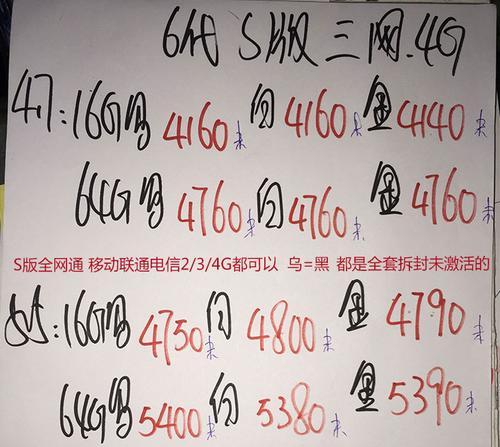 6代 S版 三网.4G
47:16G乌4160未 白4160未 金4140未
64G乌4760未 白4760未 金4760未
S版全网通 移动联通电信2/3/4G都可以 乌=黑 都是全套拆封未激活的
55:16G乌4750未 白4800未 金4790未
64G乌5400未 白5380未 金5390未